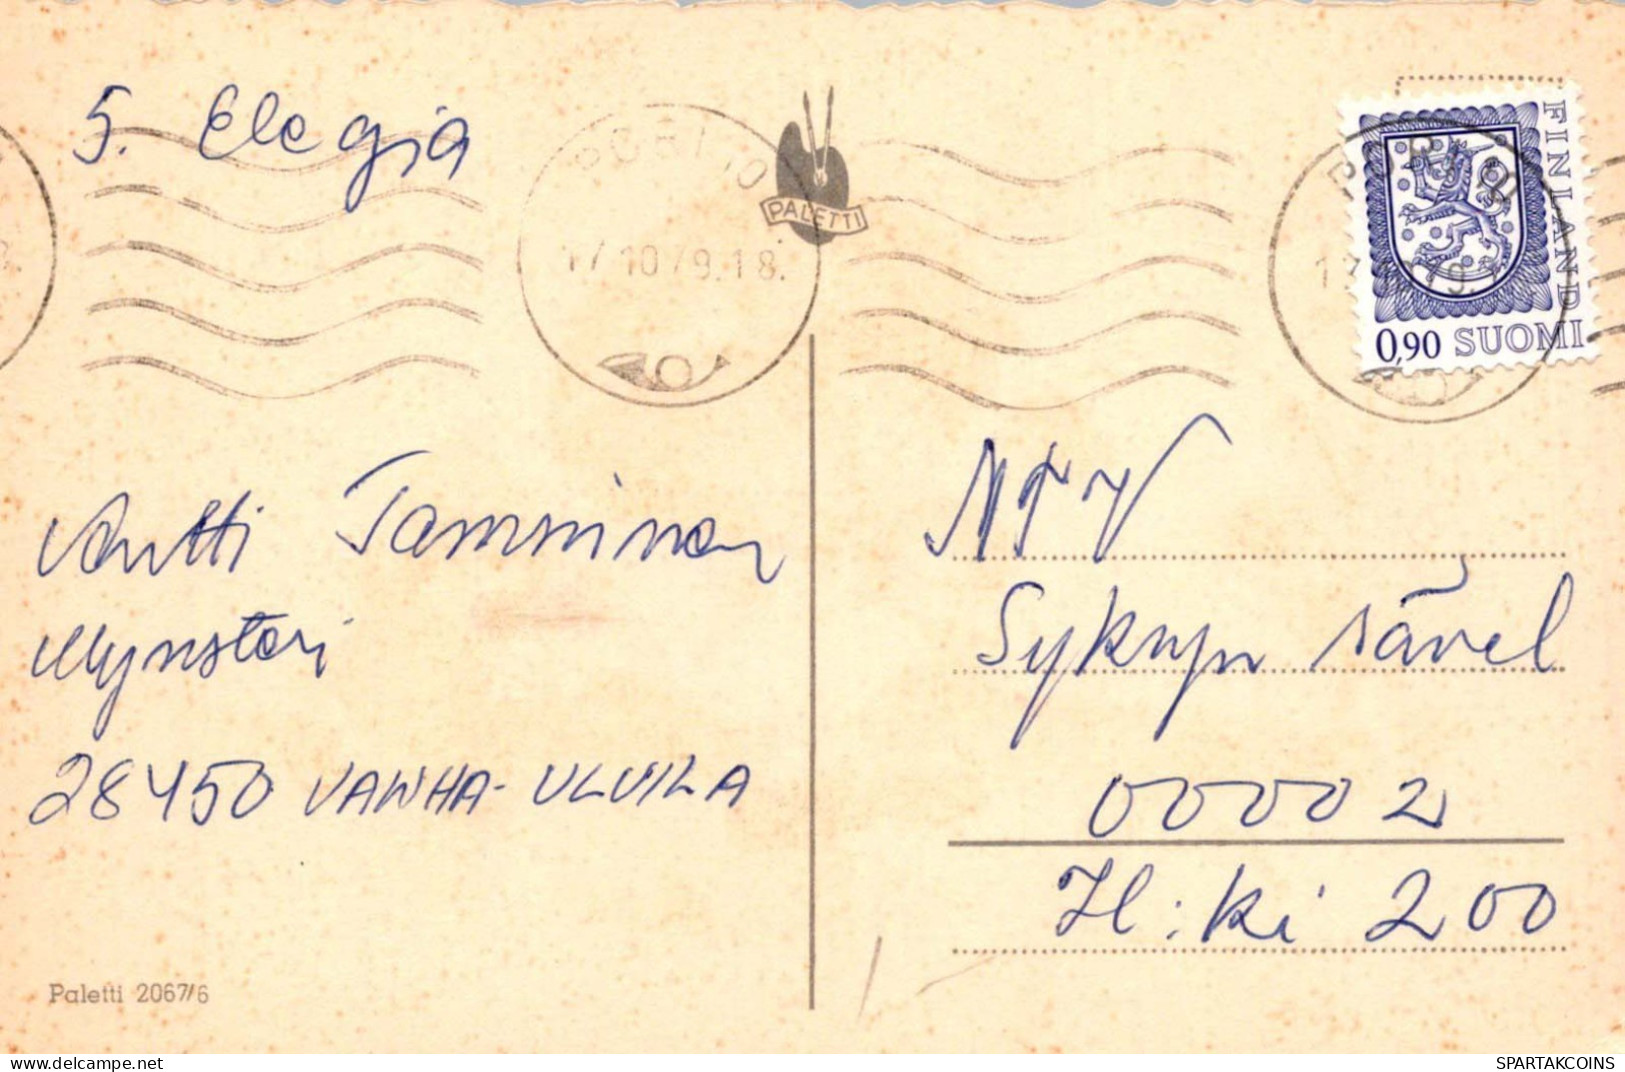 5. Elegia
PORI 10
17.10.79.18.
PALETTI
PORI 10
FINLAND
0,90 SUOMI
Antti Tamminen
Mynsteri
28450 VANHA-ULVILA
MTV
Syksyn sävel
00002
H:ki 200
Paletti 2067/6
delcampe.net
SPARTAKCOINS